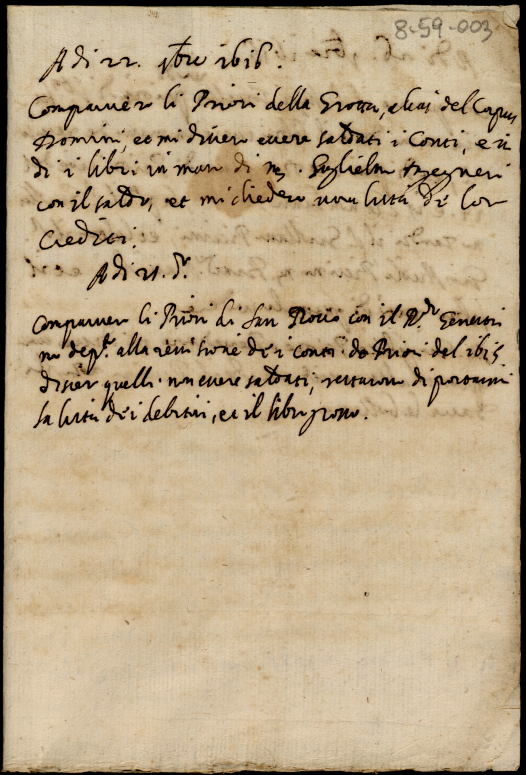 8-59-003
A di 22. 9bre 1616.
Comparver li Priori della Grotta, alias del Corpus
Domini, et mi disser essere saldati i Conti, e ...
di i libri in man di m. Guglielmo Ingegneri
con il saldo, et mi dieder una lista de lor
Crediti.
A di 21. d.
Comparver li Priori di San Rocco con il R.do
no dep.to alla revisione de i conti de Priori del 1615
disser quelli non essere saldati, restaron di portarmi
la lista de i debitori, et il libro grosso.